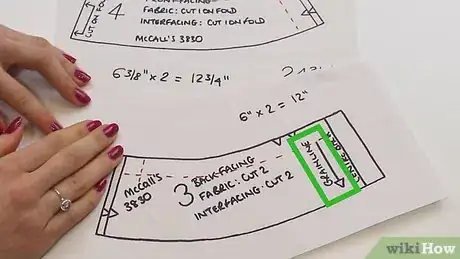 4
FABRIC: CUT 1 ON FOLD
INTERFACING: CUT 1 ON FOLD
MCCALL'S 3830
6 3/8" x 2 = 12 3/4"
6" x 2 = 12"
McCall's
3830
3
BACK FACING
FABRIC: CUT 2
INTERFACING: CUT 2
GRAINLINE
wikiHow